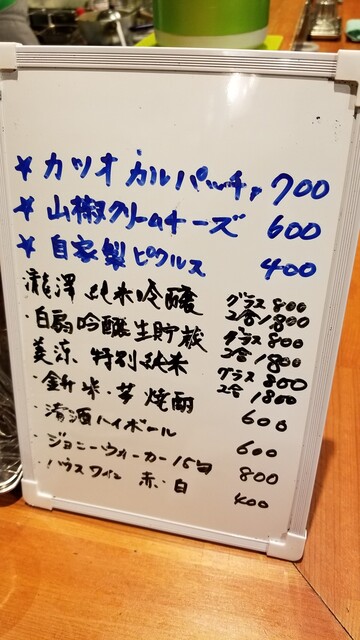 ★ カツオ カルパッチョ 700
★ 山椒クリームチーズ 600
★ 自家製ピクルス 400
瀧澤 純米吟醸 グラス 800
2合 1800
・白扇吟醸生貯蔵 グラス 800
2合 1800
美涼 特別純米 グラス 800
2合 1800
・米・芋 焼酎 600
・清酒ハイボール 600
・ジョニーウォーカー 15年 800
・ハウスワイン 赤・白 400